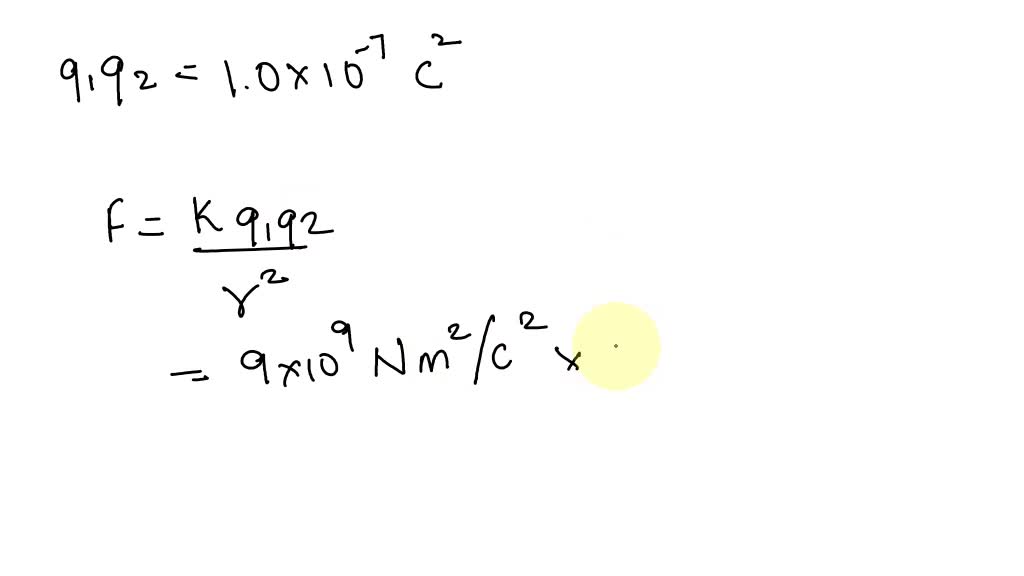 q₁q₂ = 1.0×10⁻⁷ C²
F = K q₁q₂
r²
= 9×10⁹ Nm²/C² ×